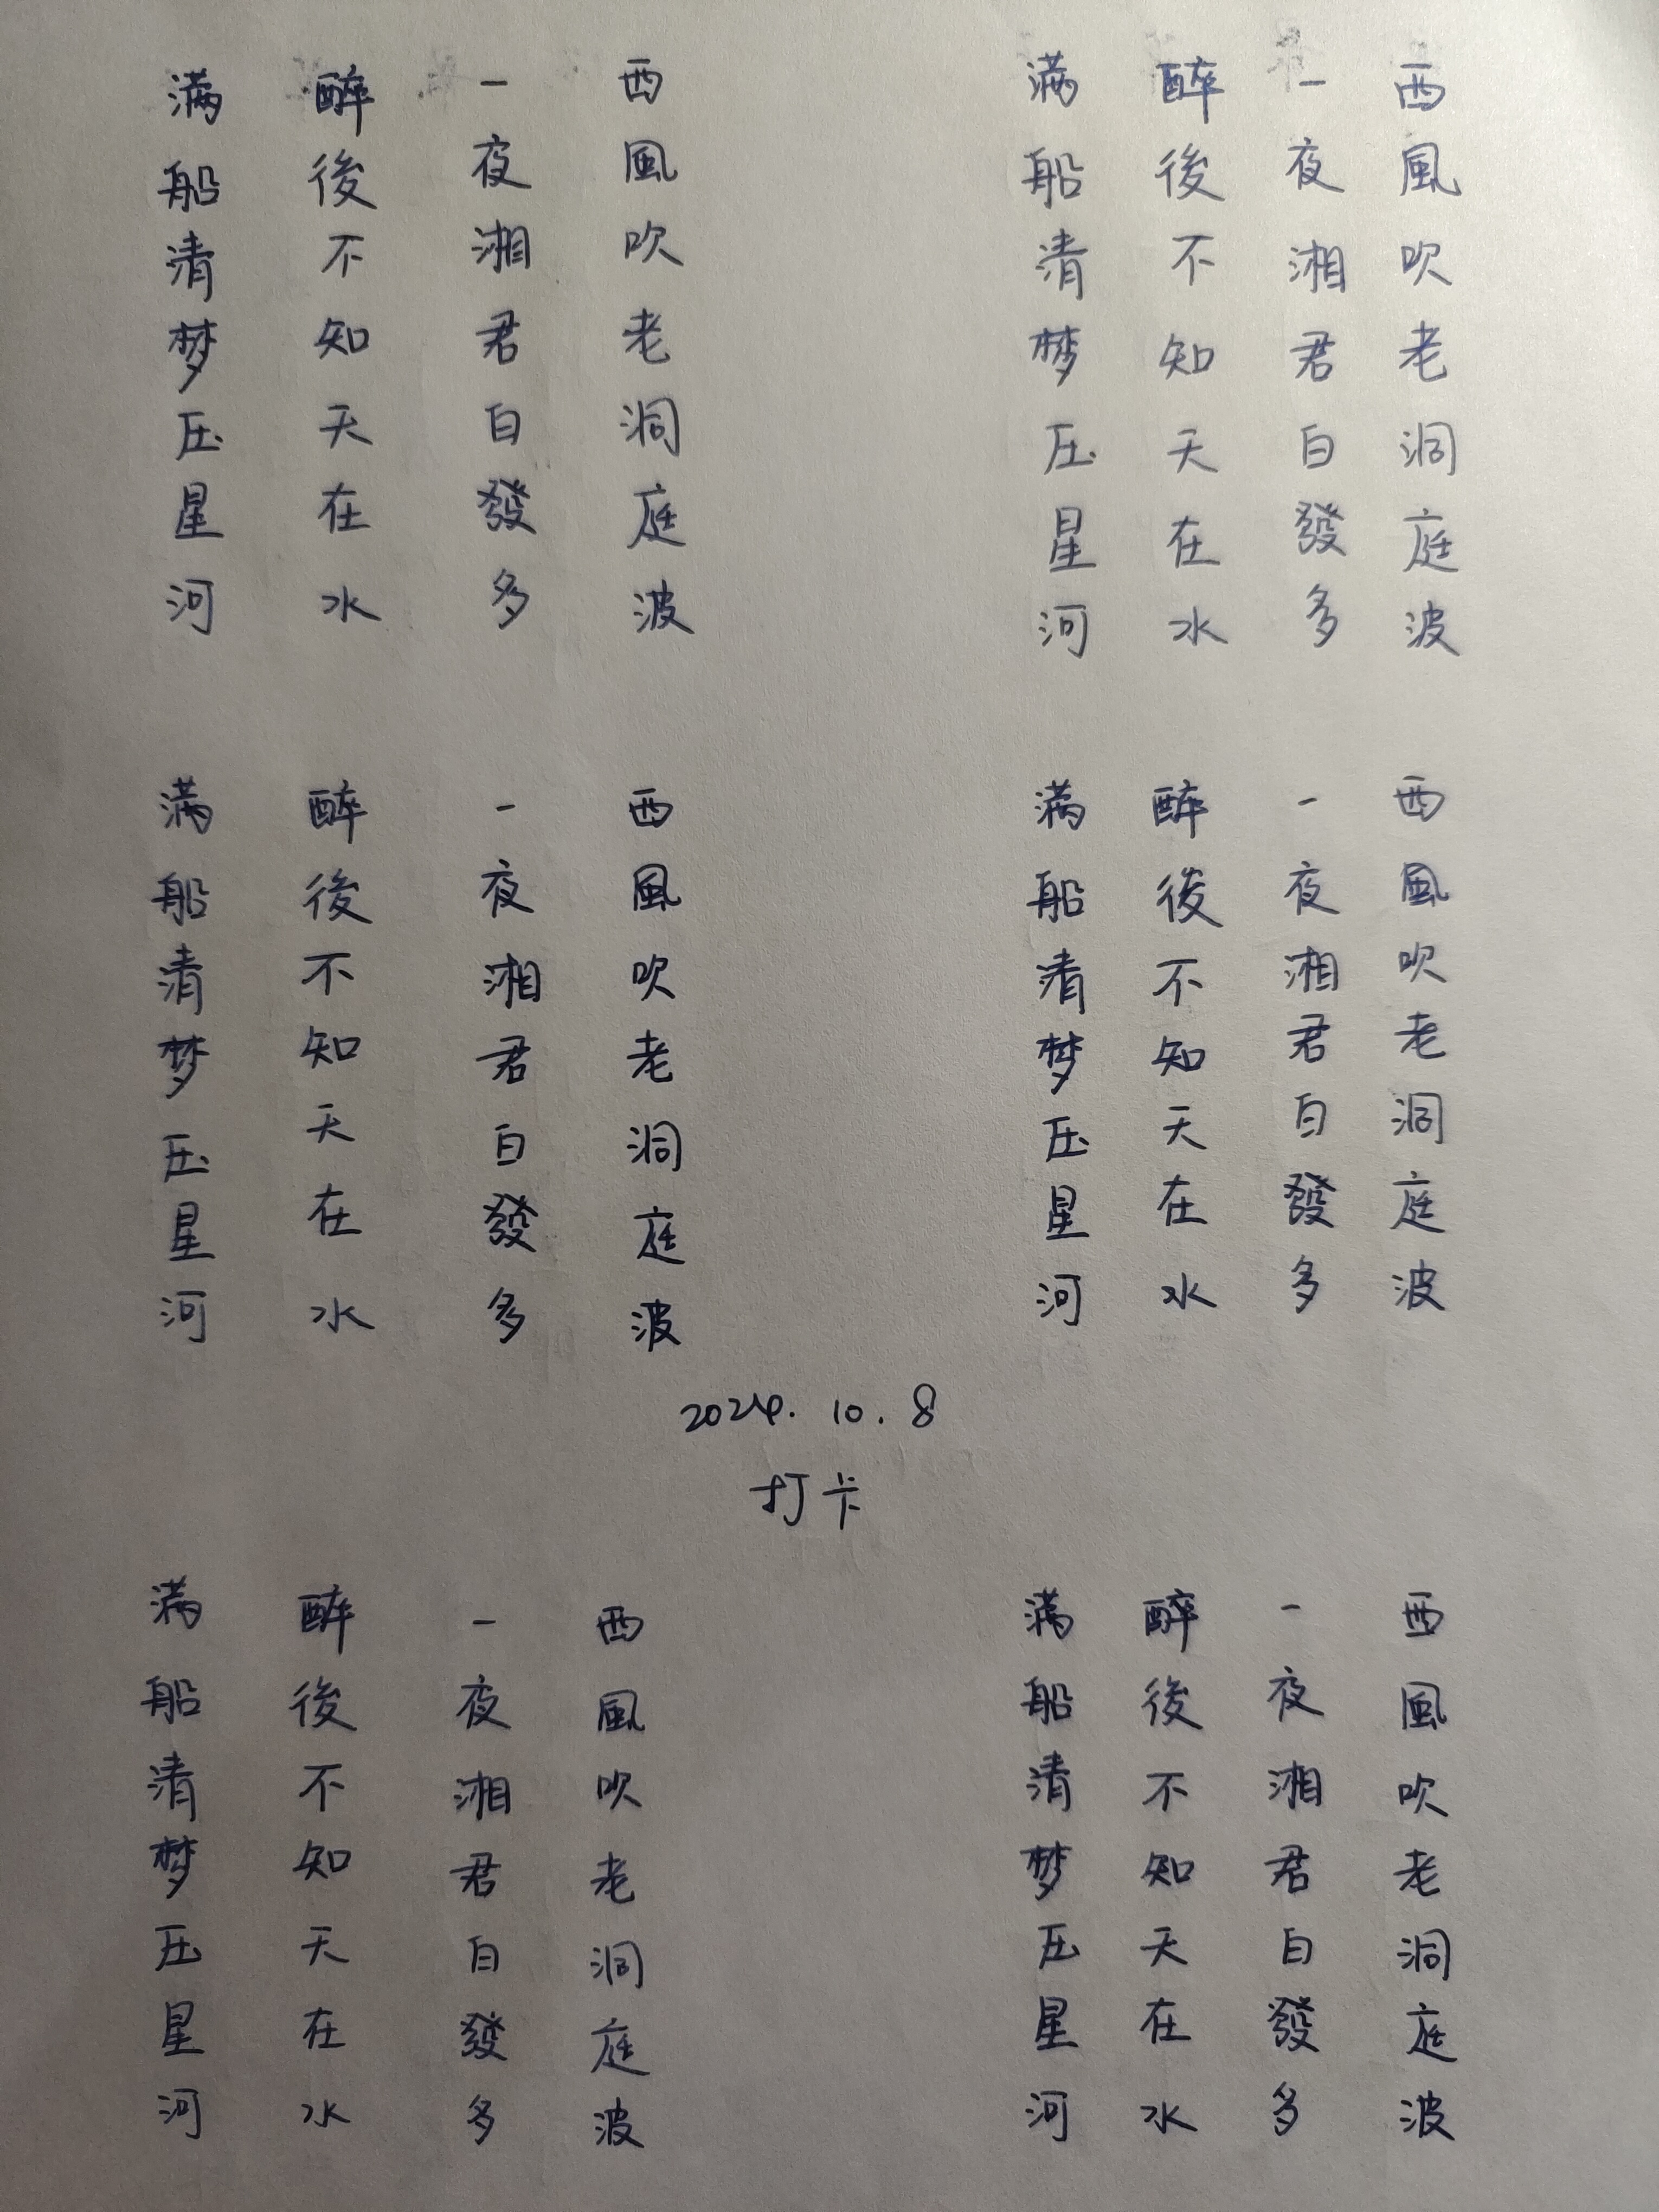 西風吹老洞庭波
一夜湘君白發多
醉後不知天在水
满船清梦压星河
西風吹老洞庭波
一夜湘君白發多
醉後不知天在水
满船清梦压星河
西風吹老洞庭波
一夜湘君白發多
醉後不知天在水
满船清梦压星河
西風吹老洞庭波
一夜湘君白發多
醉後不知天在水
满船清梦压星河
2024.10.8
打卡
西風吹老洞庭波
一夜湘君白發多
醉後不知天在水
满船清梦压星河
西風吹老洞庭波
一夜湘君白發多
醉後不知天在水
满船清梦压星河